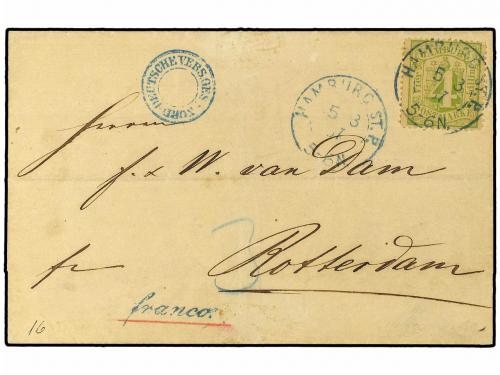 NORDDEUTSCHE VERS. GES.
HAMBURG ST. P.
5 3
5-6N.
HAMBURG ST. P.
5 3
5-6N.
4
Herrn
f. v W. van Dam
fr Rotterdam
3
franco.
16